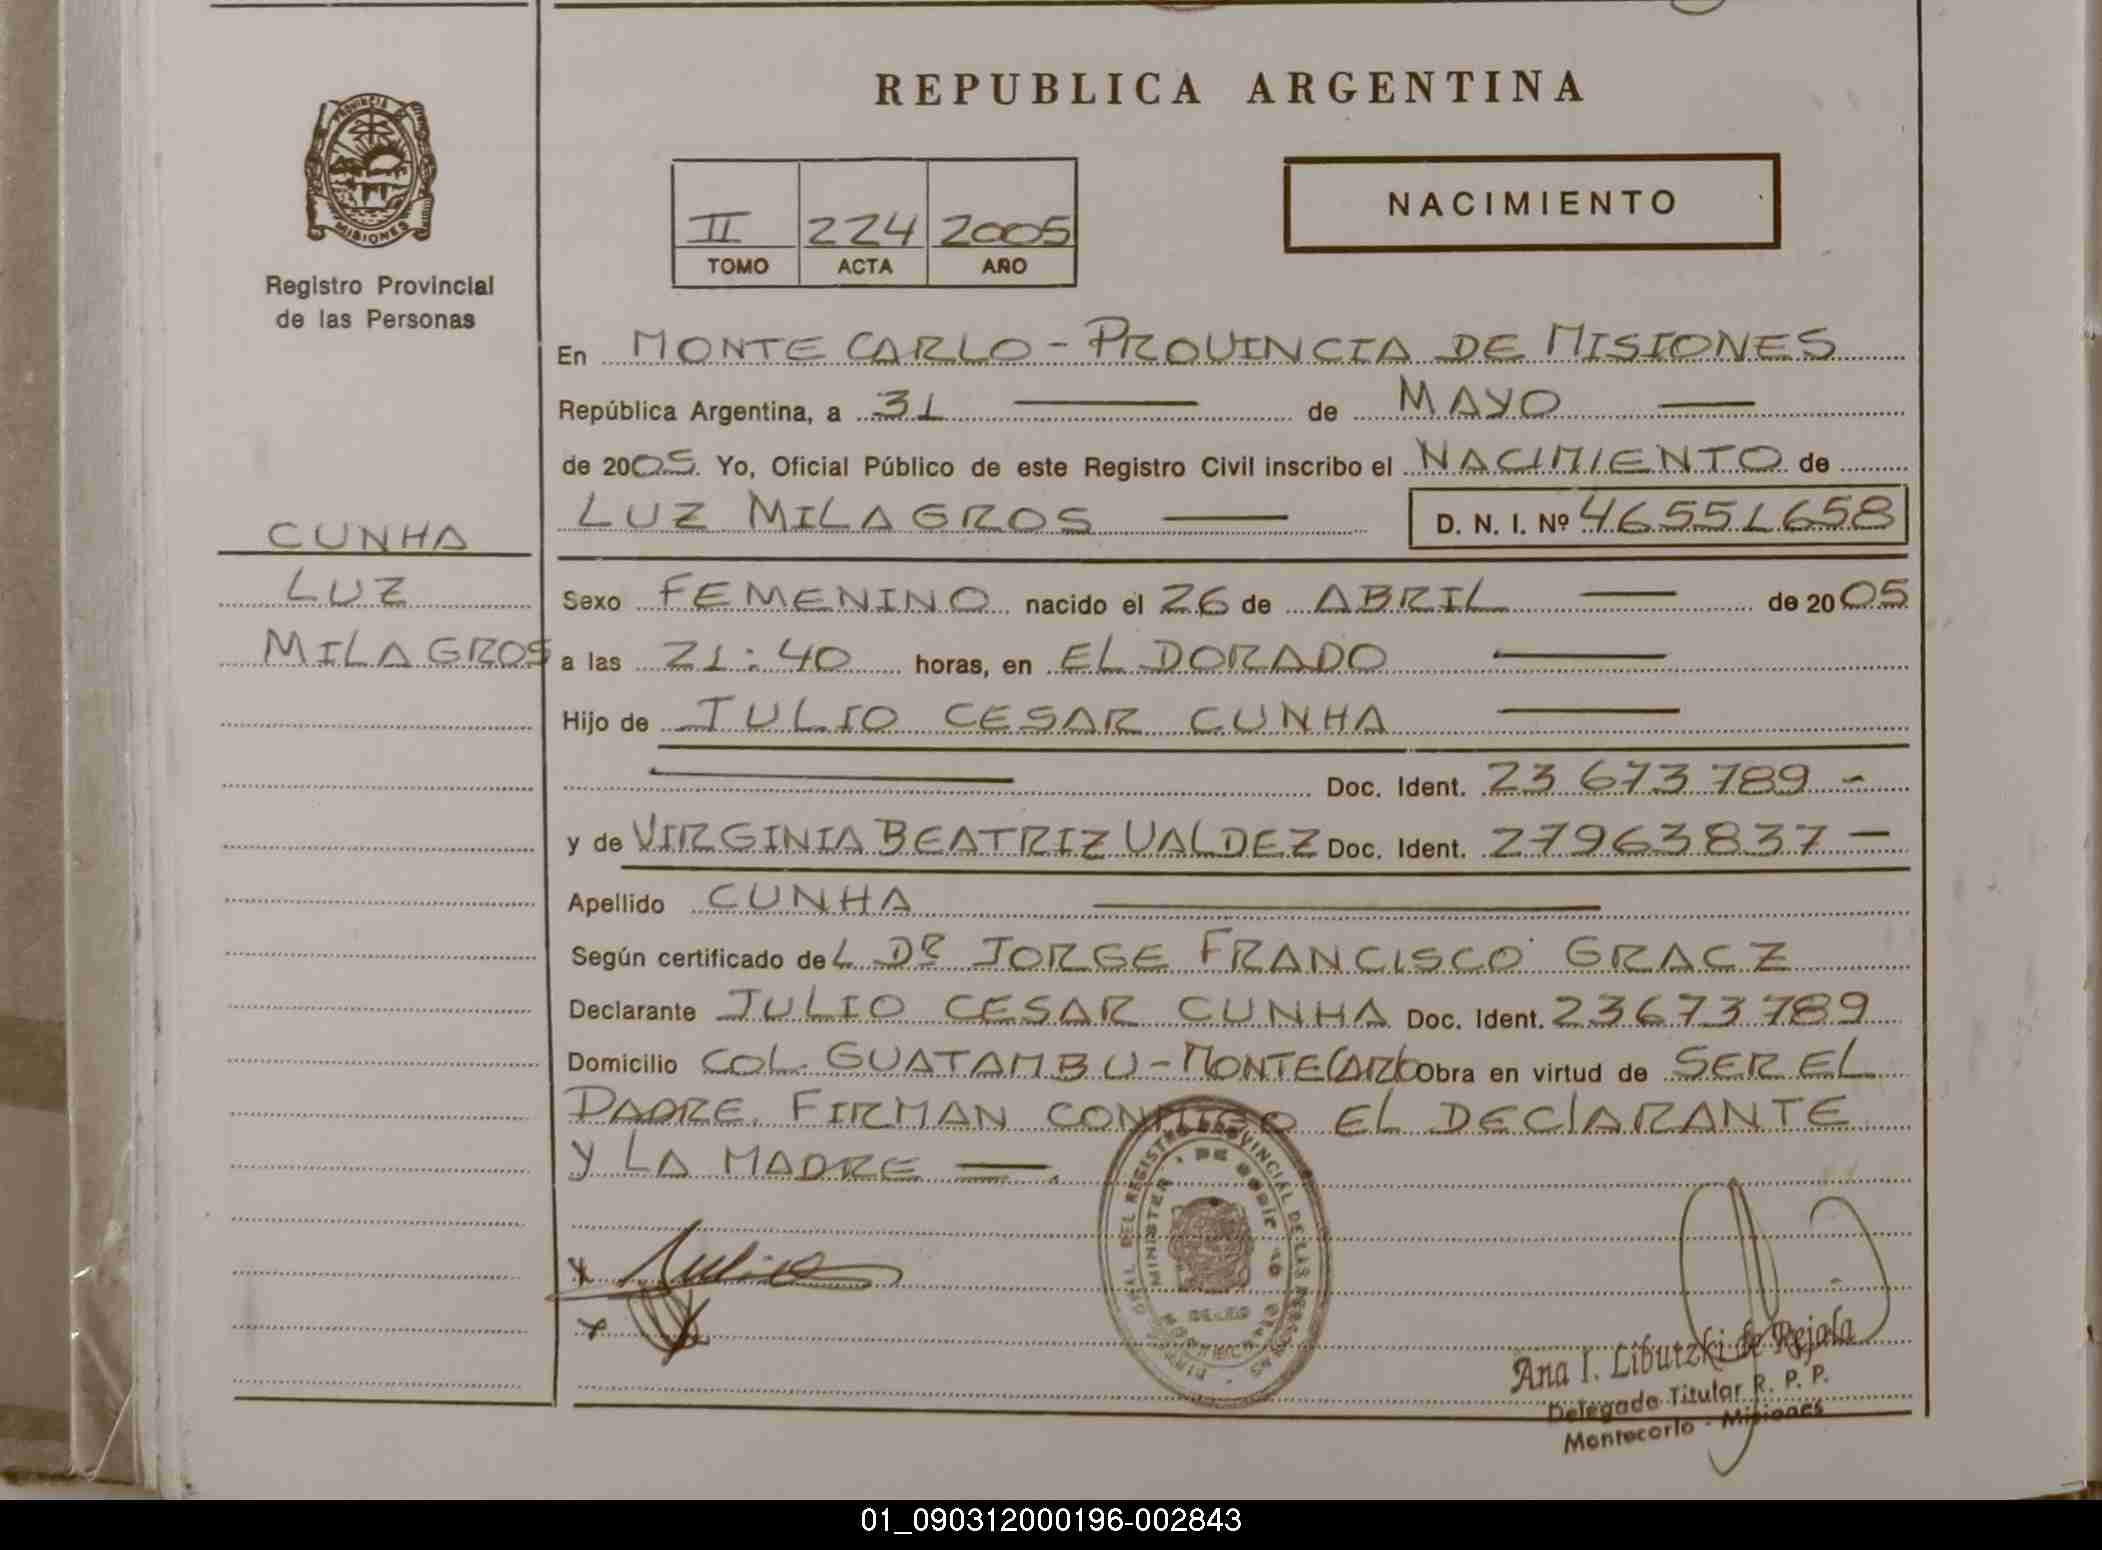 REPUBLICA ARGENTINA
PROVINCIA
MISIONES
Registro Provincial
de las Personas
II 224 2005
TOMO ACTA AÑO
NACIMIENTO
En MONTE CARLO - PROVINCIA DE MISIONES
República Argentina, a 31 — de MAYO —
de 2005. Yo, Oficial Público de este Registro Civil inscribo el NACIMIENTO de
LUZ MILAGROS — D. N. I. Nº 46551658
CUNHA
LUZ
MILAGROS
Sexo FEMENINO nacido el 26 de ABRIL — de 2005
a las 21:40 horas, en EL DORADO —
Hijo de JULIO CESAR CUNHA —
— Doc. Ident. 23 673 789 -
y de VIRGINIA BEATRIZ VALDEZ Doc. Ident. 27963837 —
Apellido CUNHA —
Según certificado del Dr JORGE FRANCISCO GRACZ
Declarante JULIO CESAR CUNHA Doc. Ident. 23673789
Domicilio COL. GUATAMBU - MONTECARLO Obra en virtud de SER EL
PADRE. FIRMAN CONMIGO EL DECLARANTE
Y LA MADRE —.
DEL REGISTRO PROVINCIAL DE LAS PERSONAS
MINISTER DE GOBIE
Ana I. Libutzki de Rejala
Delegado Titular R. P. P.
Montecarlo - Misiones
01_090312000196-002843